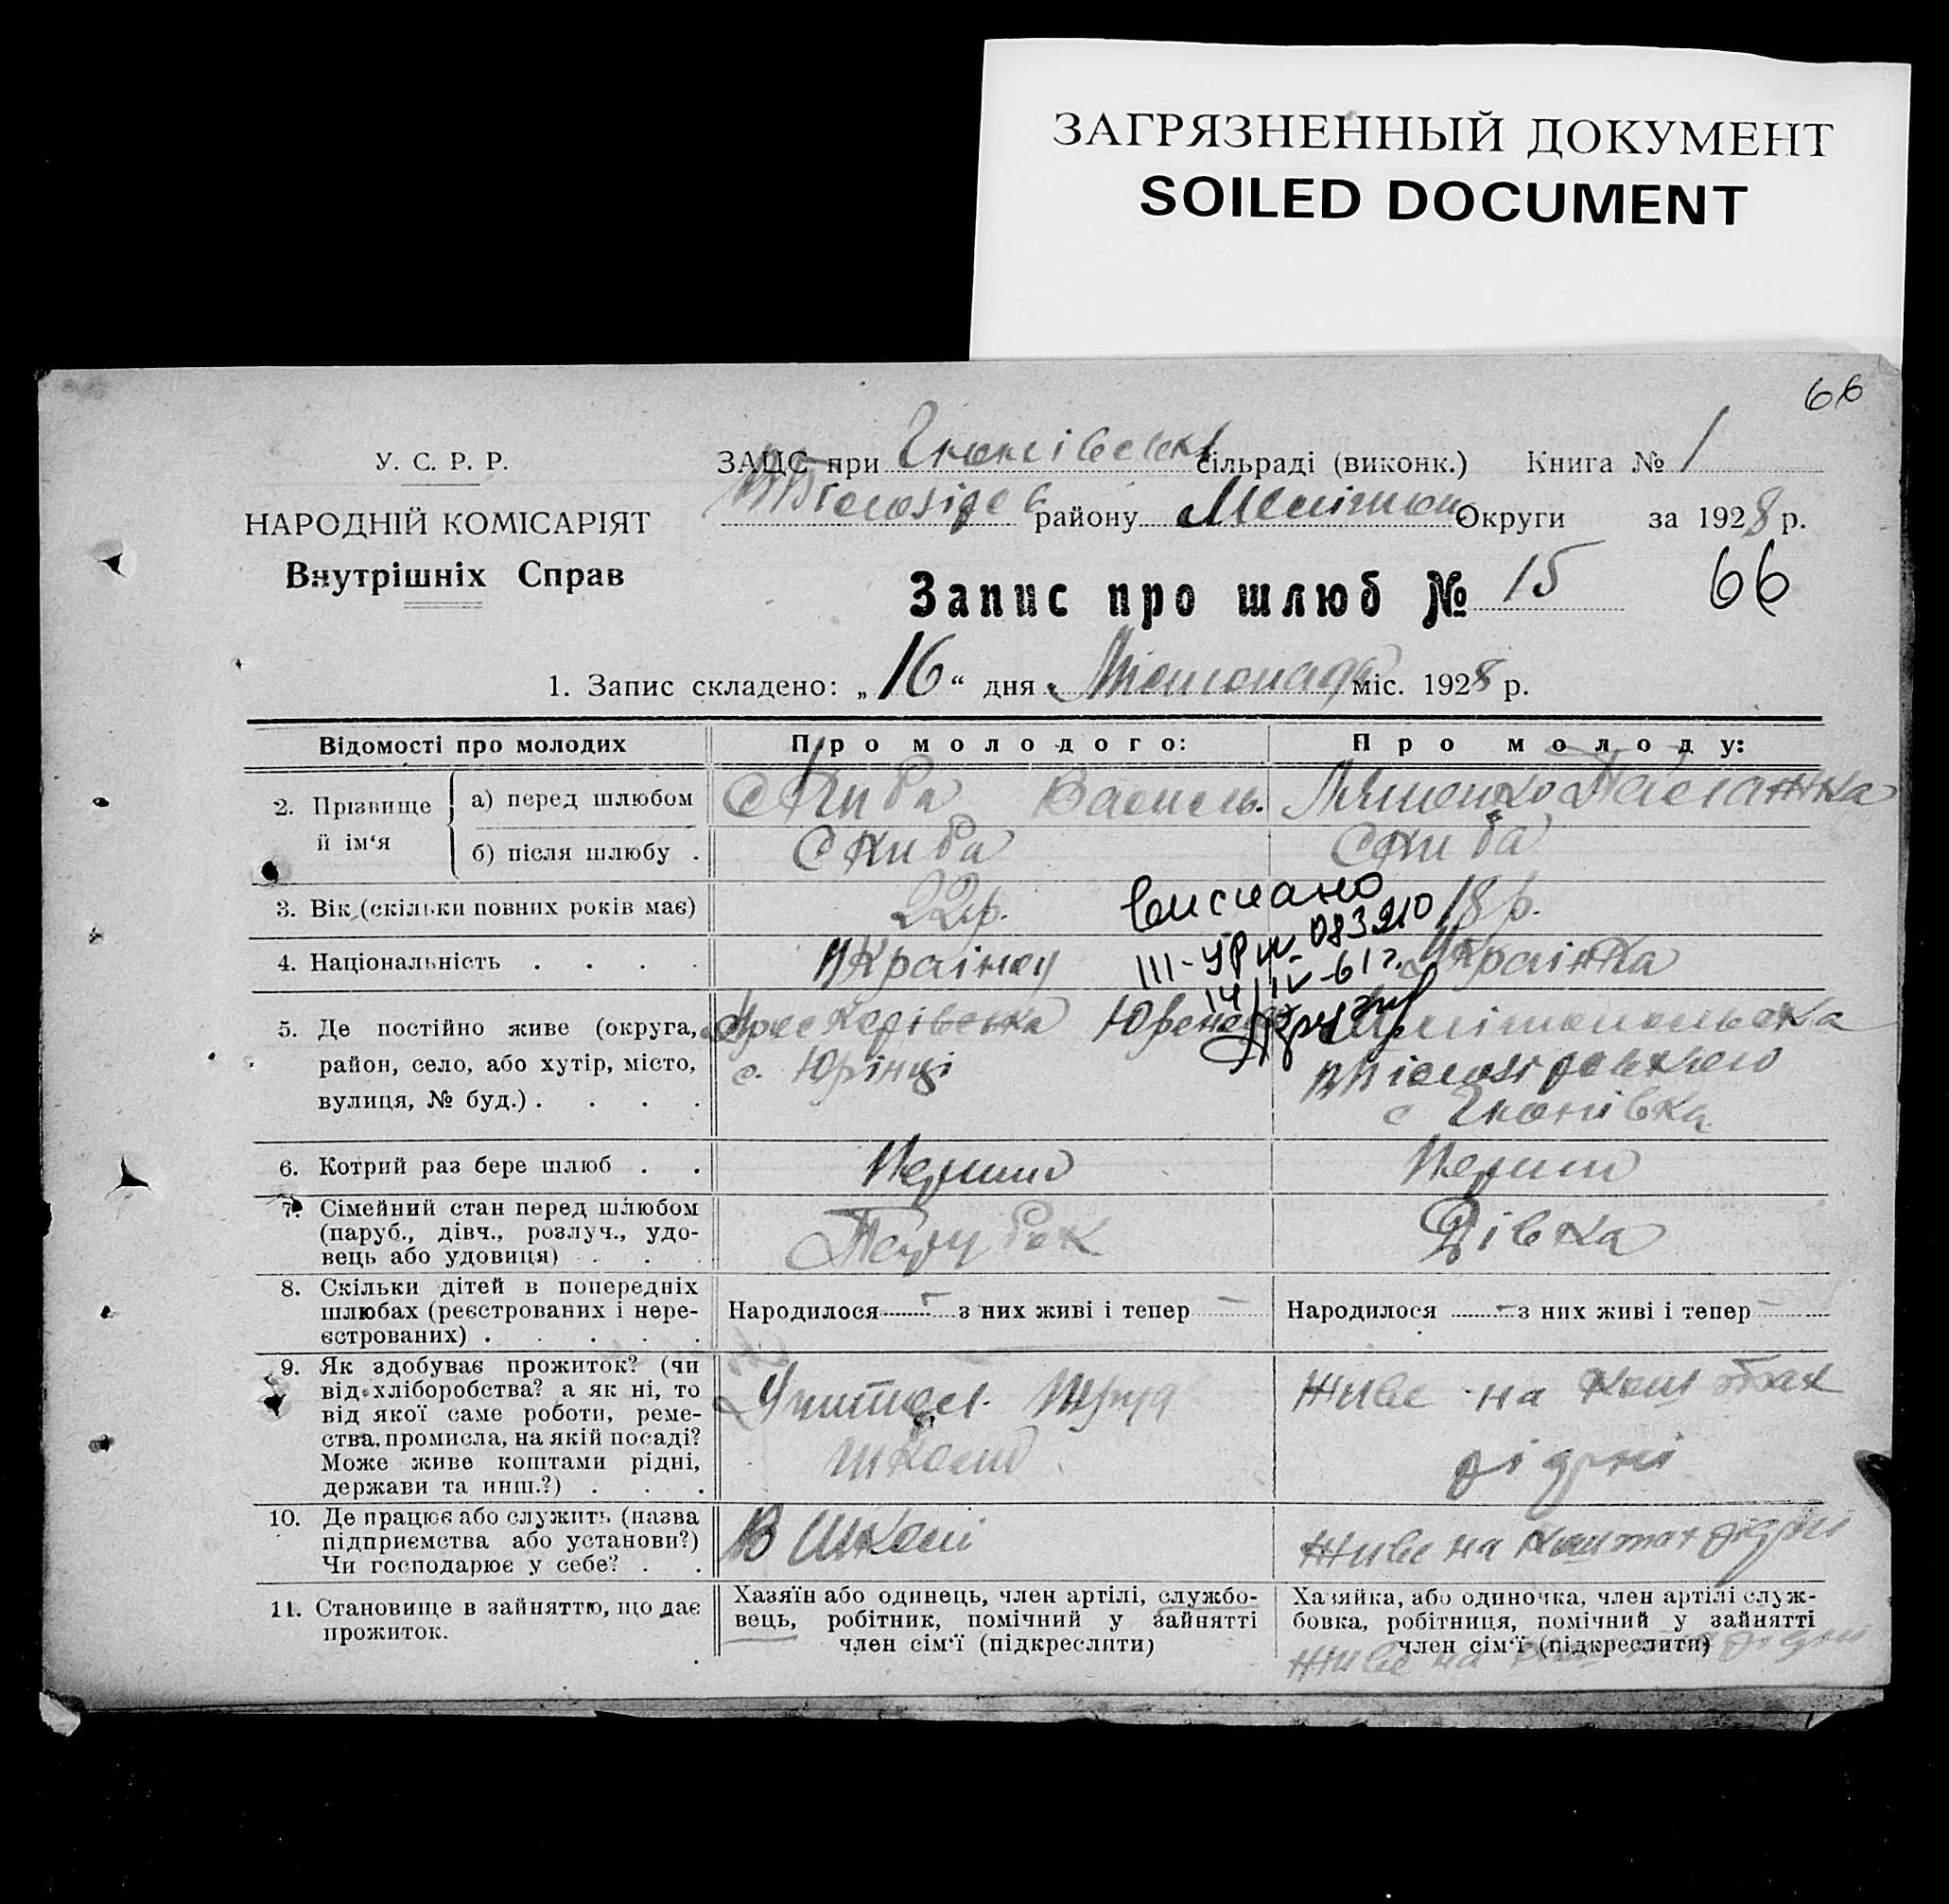 ЗАГРЯЗНЕННЫЙ ДОКУМЕНТ
SOILED DOCUMENT
66
У. С. Р. Р.
НАРОДНІЙ КОМІСАРІЯТ
Внутрішніх Справ
ЗАЦС при сільраді (виконк.) Книга № 1
району Мелітоп Округи за 1928 р.
Запис про шлюб № 15
66
1. Запис складено: „16“ дня Листопада міс. 1928 р.
Відомості про молодих
Про молодого:
Про молоду:
2. Прізвище й ім‘я
а) перед шлюбом
Скиба Василь.
Ляшенко
б) після шлюбу .
Скиба
Скиба
3. Вік (скільки повних років має)
22 р.
18 р.
виписано
III-УР № 083210
14/IV-61 г.
4. Національність . . . .
Українец
Українка
5. Де постійно живе (округа, район, село, або хутір, місто, вулиця, № буд.) . . . .
с. Юрінці
Мелітопольська
6. Котрий раз бере шлюб . .
Перший
Перший
7. Сімейний стан перед шлюбом (паруб., дівч., розлуч., удовець або удовиця) . . .
Парубок
Дівка
8. Скільки дітей в попередніх шлюбах (реєстрованих і нереєстрованих) . . . . .
Народилося – з них живі і тепер –
Народилося – з них живі і тепер –
9. Як здобуває прожиток? (чи від хліборобства? а як ні, то від якої саме роботи, ремества, промисла, на якій посаді? Може живе коштами рідні, держави та инш.?) . . .
Учител. Труд
школи
Живе на коштах
рідні
10. Де працює або служить (назва підприємства або установи?) Чи господарює у себе? . .
В школі
Живе на коштах рідні
11. Становище в зайняттю, що дає прожиток.
Хазяїн або одинець, член артілі, службовець, робітник, помічний у зайнятті член сім‘ї (підкреслити)
Хазяйка, або одиночка, член артілі службовка, робітниця, помічний у зайнятті член сім‘ї (підкреслити)
Живе на